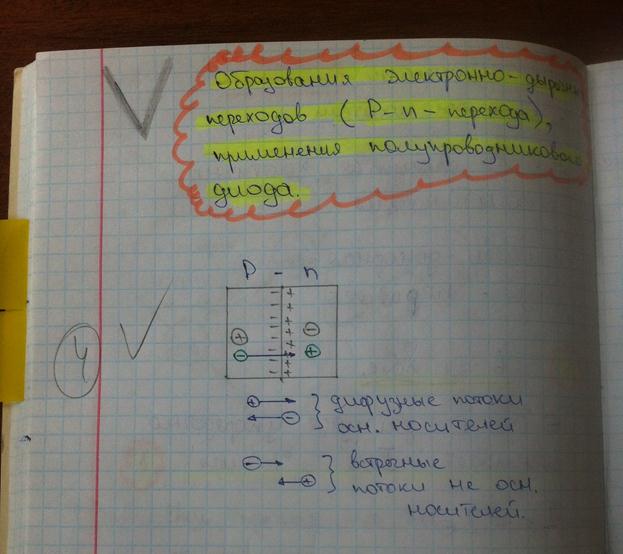 Образования электронно-дырочн
переходов (P-n-перехода),
применения полупроводникового
диода.
P - n
4
+ -
- +
+ } дифузные потоки
- осн. носителей
- } встречные
+ потоки не осн.
носителей.